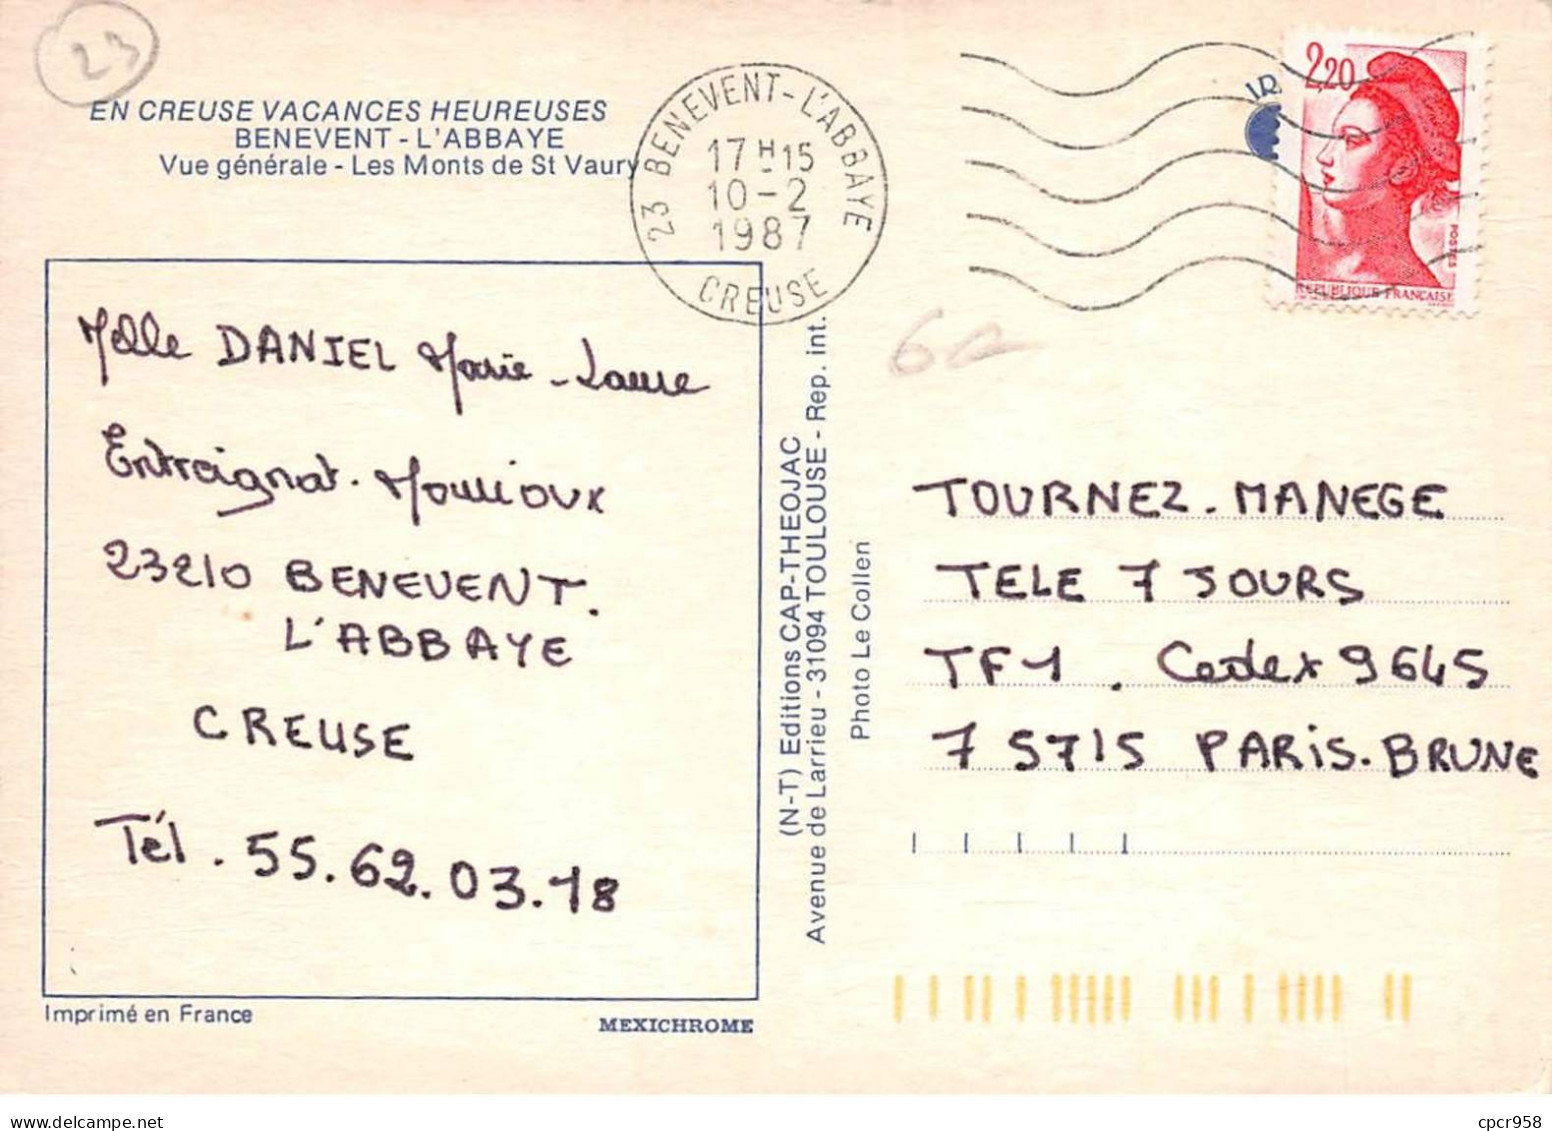 23
EN CREUSE VACANCES HEUREUSES
BENEVENT - L'ABBAYE
Vue générale - Les Monts de St Vaury
23 BENEVENT - L'ABBAYE
17 H 15
10 - 2
1987
CREUSE
2,20
POSTES
REPUBLIQUE FRANÇAISE
Melle DANIEL Marie-Laure
Entraignat. Mourioux
23210 BENEVENT.
L'ABBAYE
CREUSE
Tél. 55.62.03.18
Imprimé en France
MEXICHROME
(N-T) Editions CAP-THEOJAC
Avenue de Larrieu - 31094 TOULOUSE - Rep. int.
Photo Le Collen
TOURNEZ. MANEGE
TELE 7 JOURS
TF1. Cedex 9645
75715 PARIS. BRUNE
cpcr958